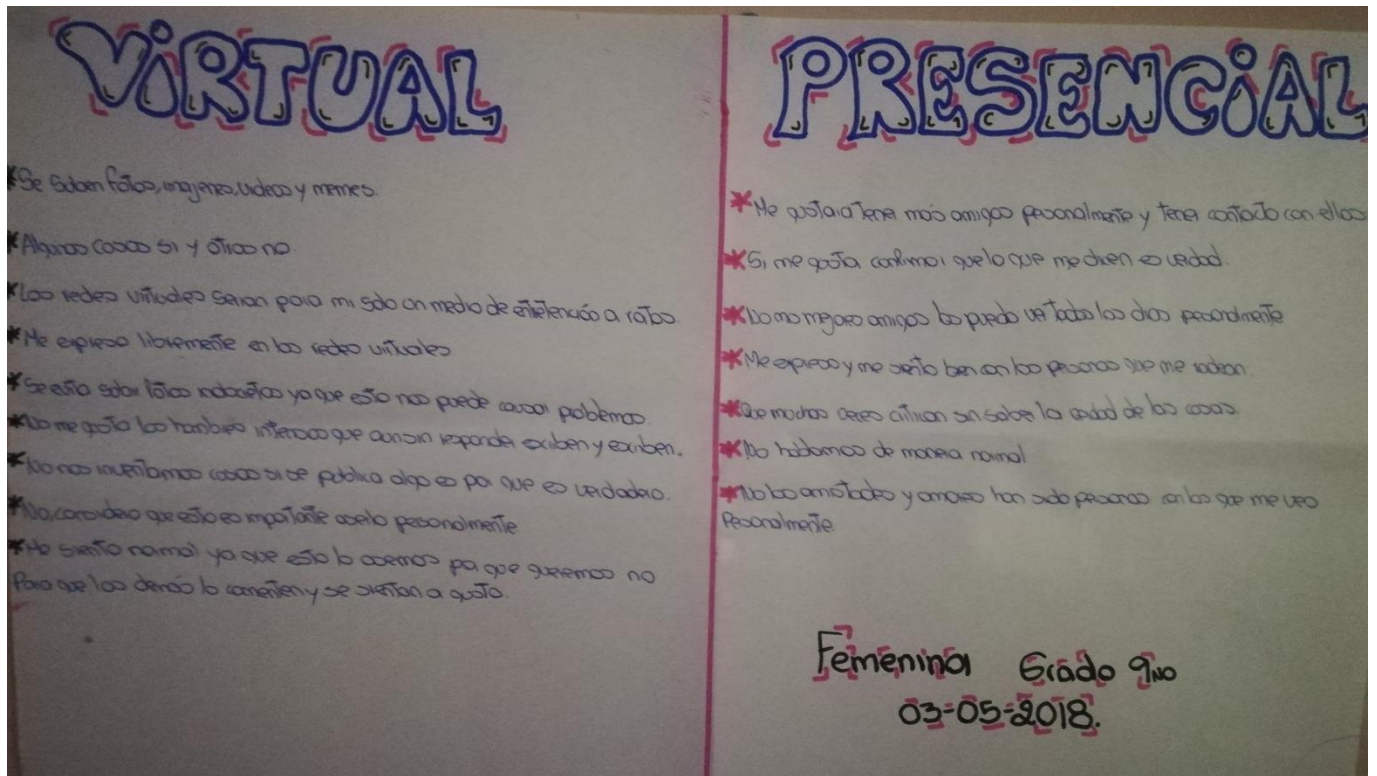 VIRTUAL
*Se suben fotos, imagenes, videos y memes.
*Algunas cosas si y otras no
*Las redes virtuales serian para mi solo un medio de entretención a ratos.
*Me expreso libremente en las redes virtuales
*Se evita subir fotos indosetas ya que esto nos puede causar problemas.
*No me gusta los hombres intensos que aun sin responder escriben y escriben.
*No nos inventamos cosas si se publica algo es por que es verdadero.
*No, considero que esto es importante aserlo personalmente
*Me siento normal ya que esto lo asemos por que queremos no
Para que los demás lo comenten y se sientan a gusto.
PRESENCIAL
*Me gustaria tener más amigos personalmente y tener contacto con ellos
*Si, me gusta confirmar que lo que me dicen es verdad.
*No mis mejores amigos los puedo ver todos los dias personalmente
*Me expreso y me siento bien con las personas que me rodean
*Que muchas veces critican sin saber la verdad de las cosas.
*No hablamos de manera normal
*No las amistades y amores han sido personas con las que me veo
Personalmente
Femenina Grado 9no
03-05-2018.